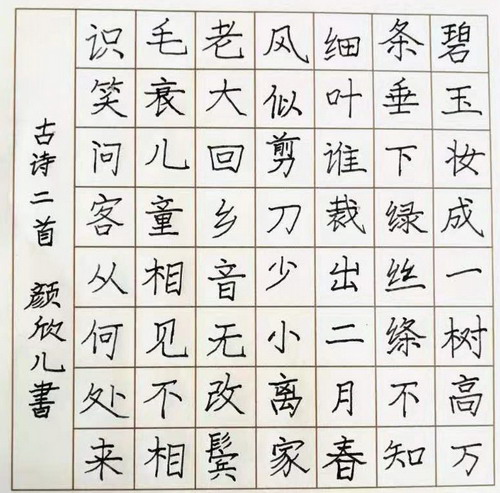 碧玉妆成一树高万
条垂下绿丝绦不知
细叶谁裁出二月春
风似剪刀少小离家
老大回乡音无改鬓
毛衰儿童相见不相
识笑问客从何处来
古诗二首 颜欣儿書